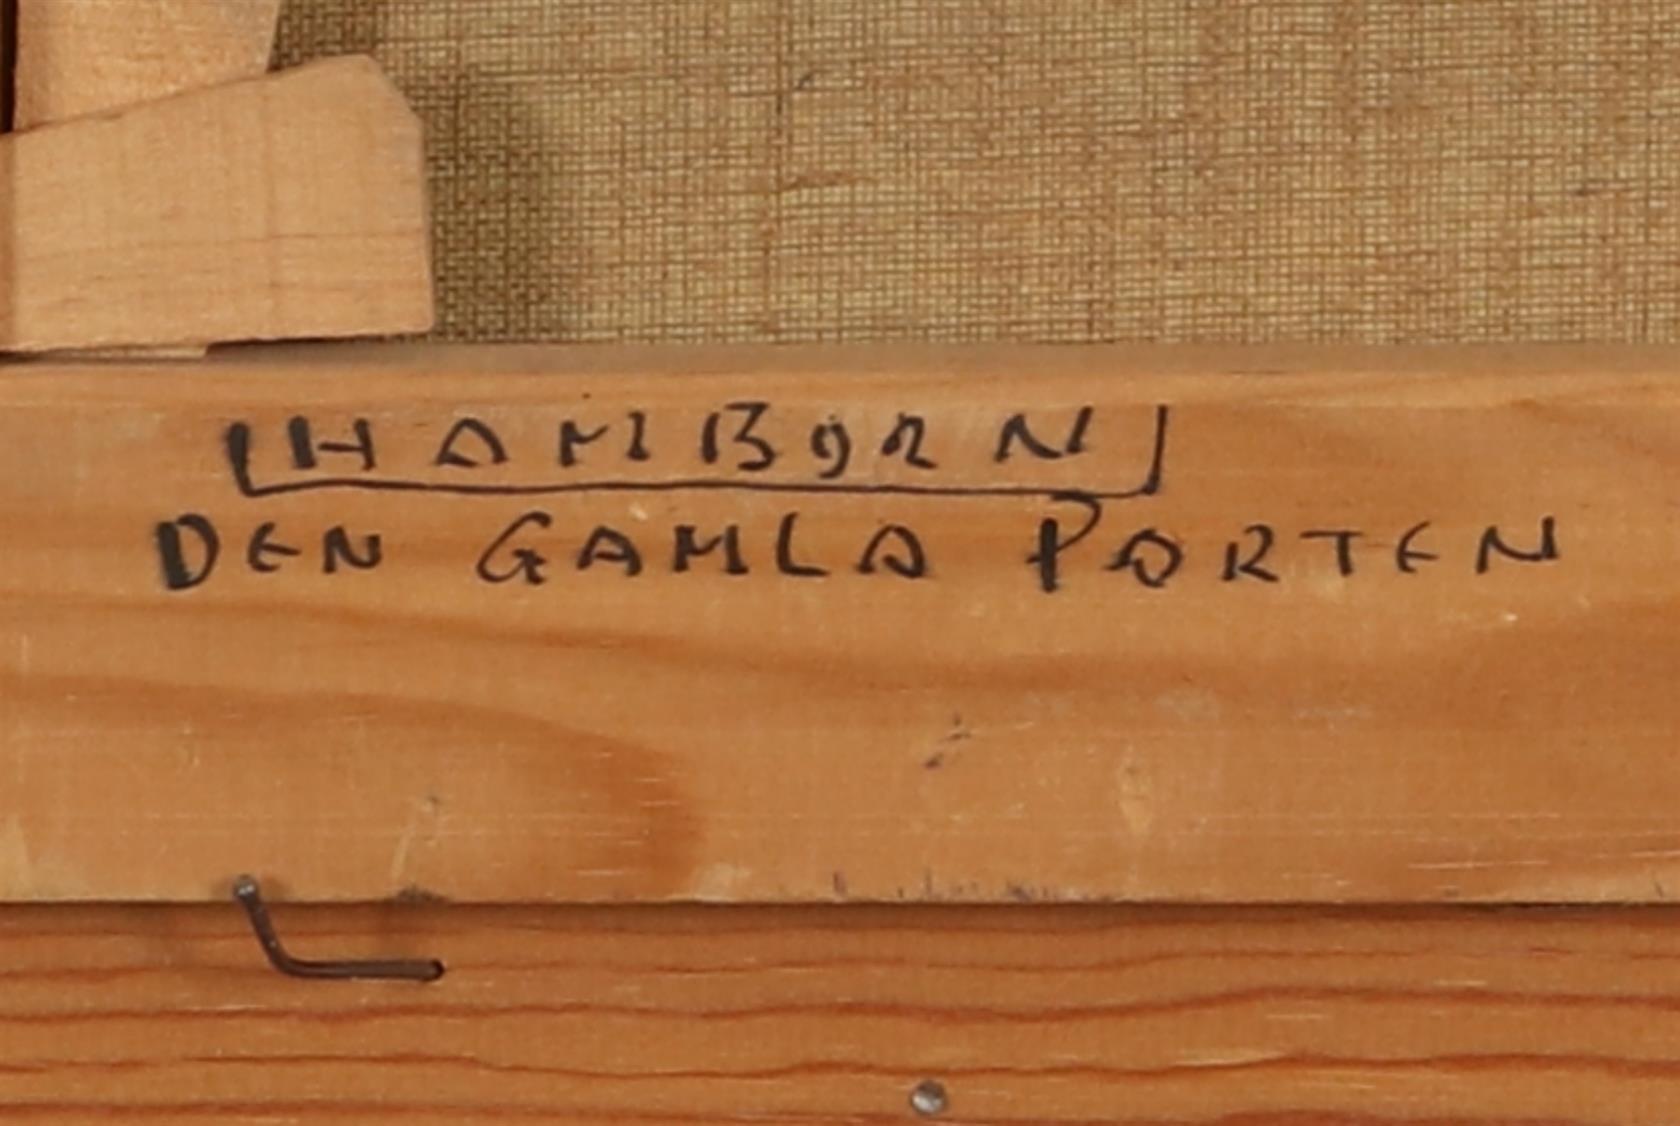 HAMBORN
DEN GAMLA PORTEN